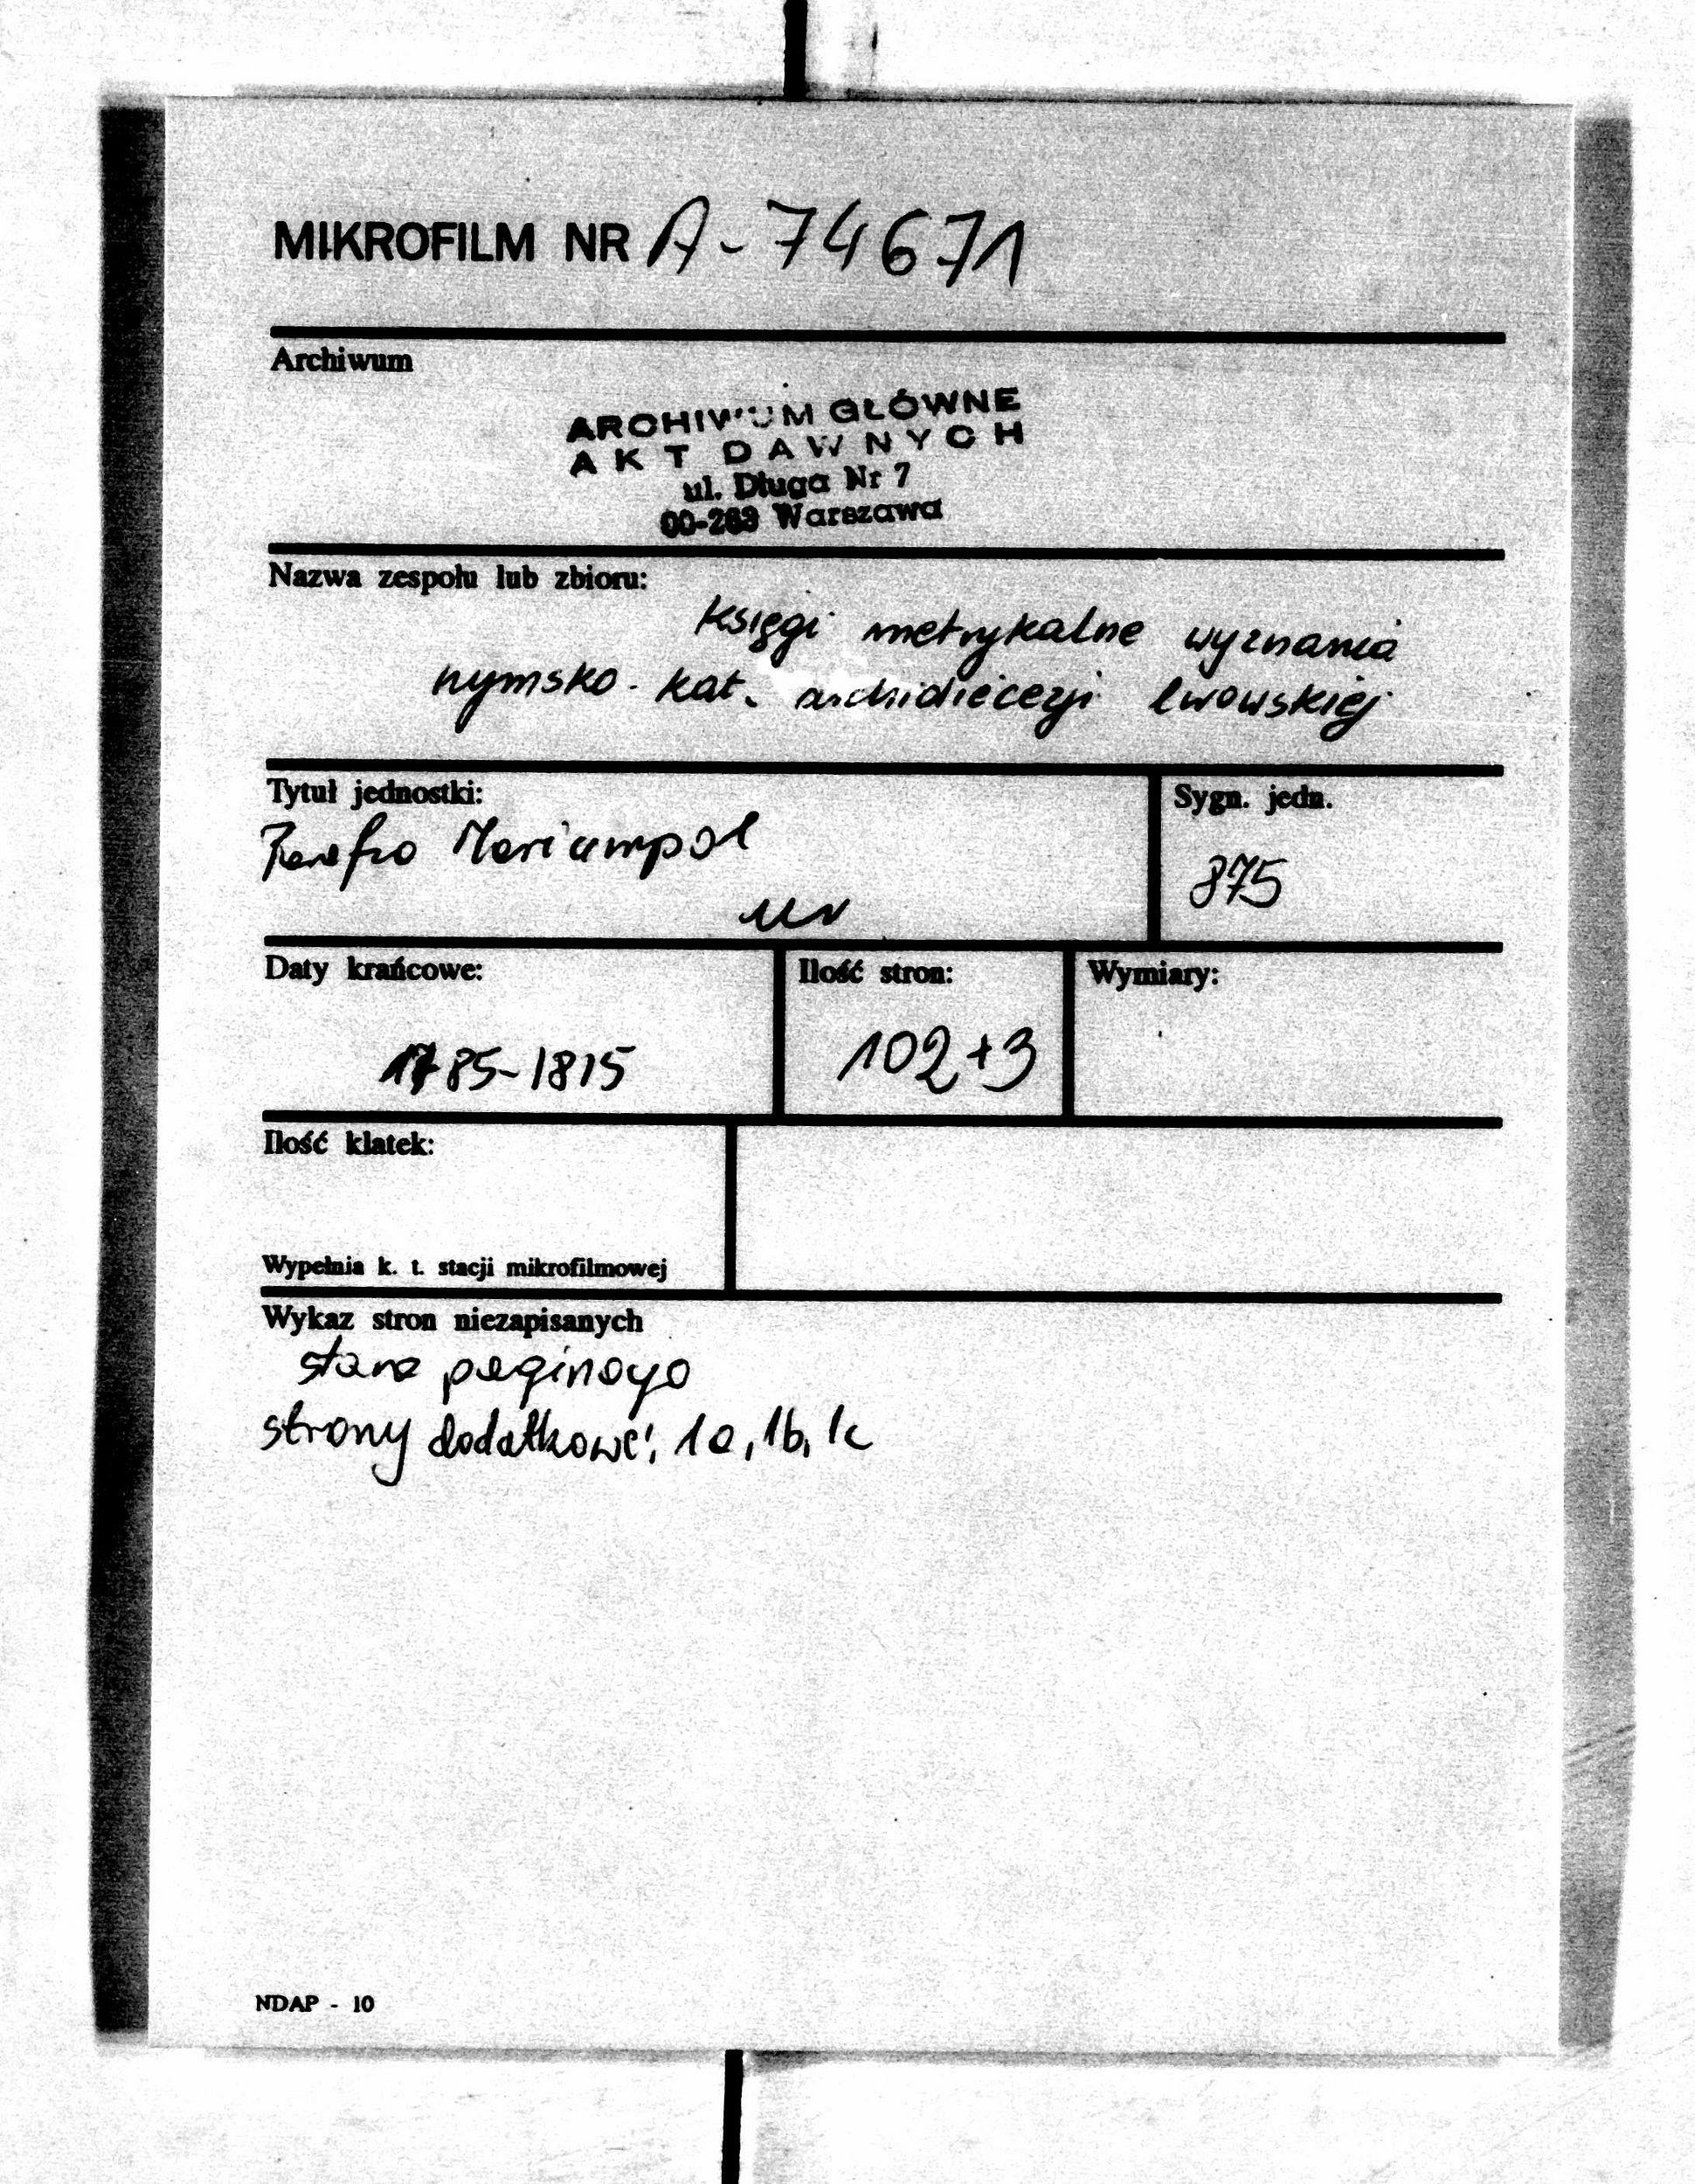 MIKROFILM NR A-74671
Archiwum
ARCHIWUM GŁÓWNE
AKT DAWNYCH
ul. Długa Nr 7
00-263 Warszawa
Nazwa zespołu lub zbioru:
Księgi metrykalne wyznania
rzymsko-kat. archidiecezji lwowskiej
Tytuł jednostki:
Sygn. jedn.
Parafia Mariampol
875
Daty krańcowe:
Ilość stron:
Wymiary:
1785-1815
102+3
Ilość klatek:
Wypełnia k. t. stacji mikrofilmowej
Wykaz stron niezapisanych
stara paginacja
strony dodatkowe: 1a, 1b, 1c
NDAP - 10